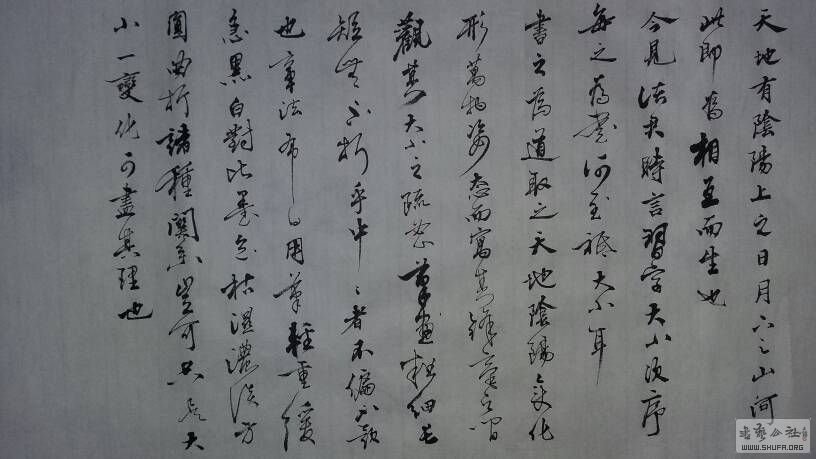 天地有陰陽上之日月下之山河
此即為相互而生也
今見法書時言習字大小次序
每之為書何至祗大小耳
書之為道取之天地陰陽變化
形萬物姿态而寫其
觀其大小之疏密筆畫粗細長
短無不折乎中中者不偏不歌
也章法布白用筆輕重緩
急黑白對比墨色枯濕濃淡方
圓曲折諸種關系豈可只言大
小一變化可盡其理也
書藝公社
WWW.SHUFA.ORG